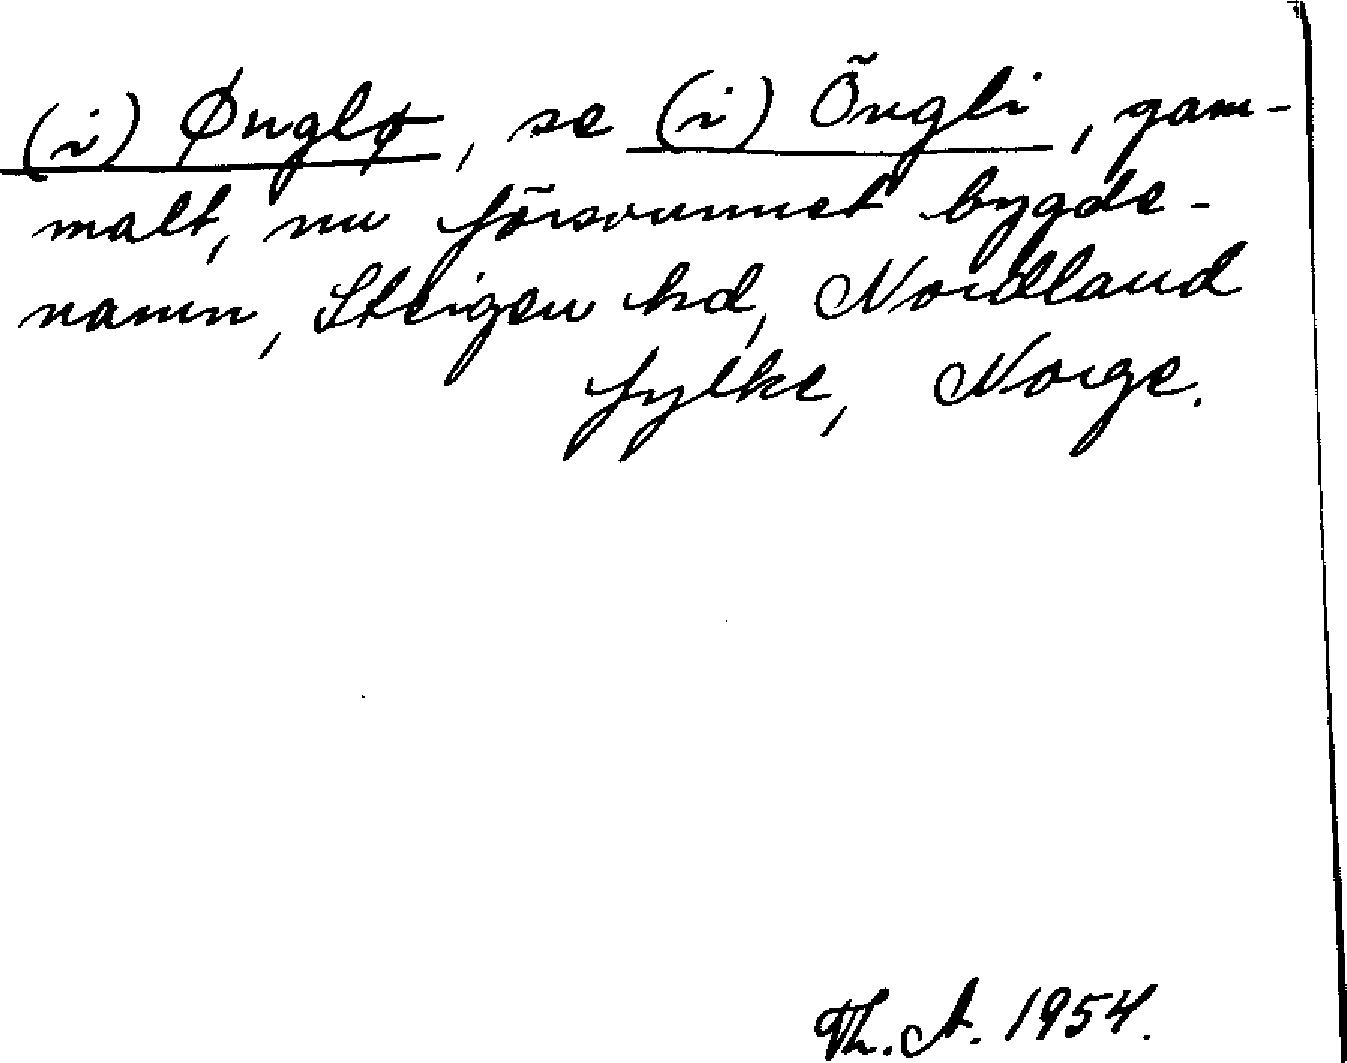 (i) Ønglø, se (i) Öngli, gam-
malt, nu försvunnet bygde-
namn, Steigen hd, Nordland
fylke, Norge.
Th. A. 1954.